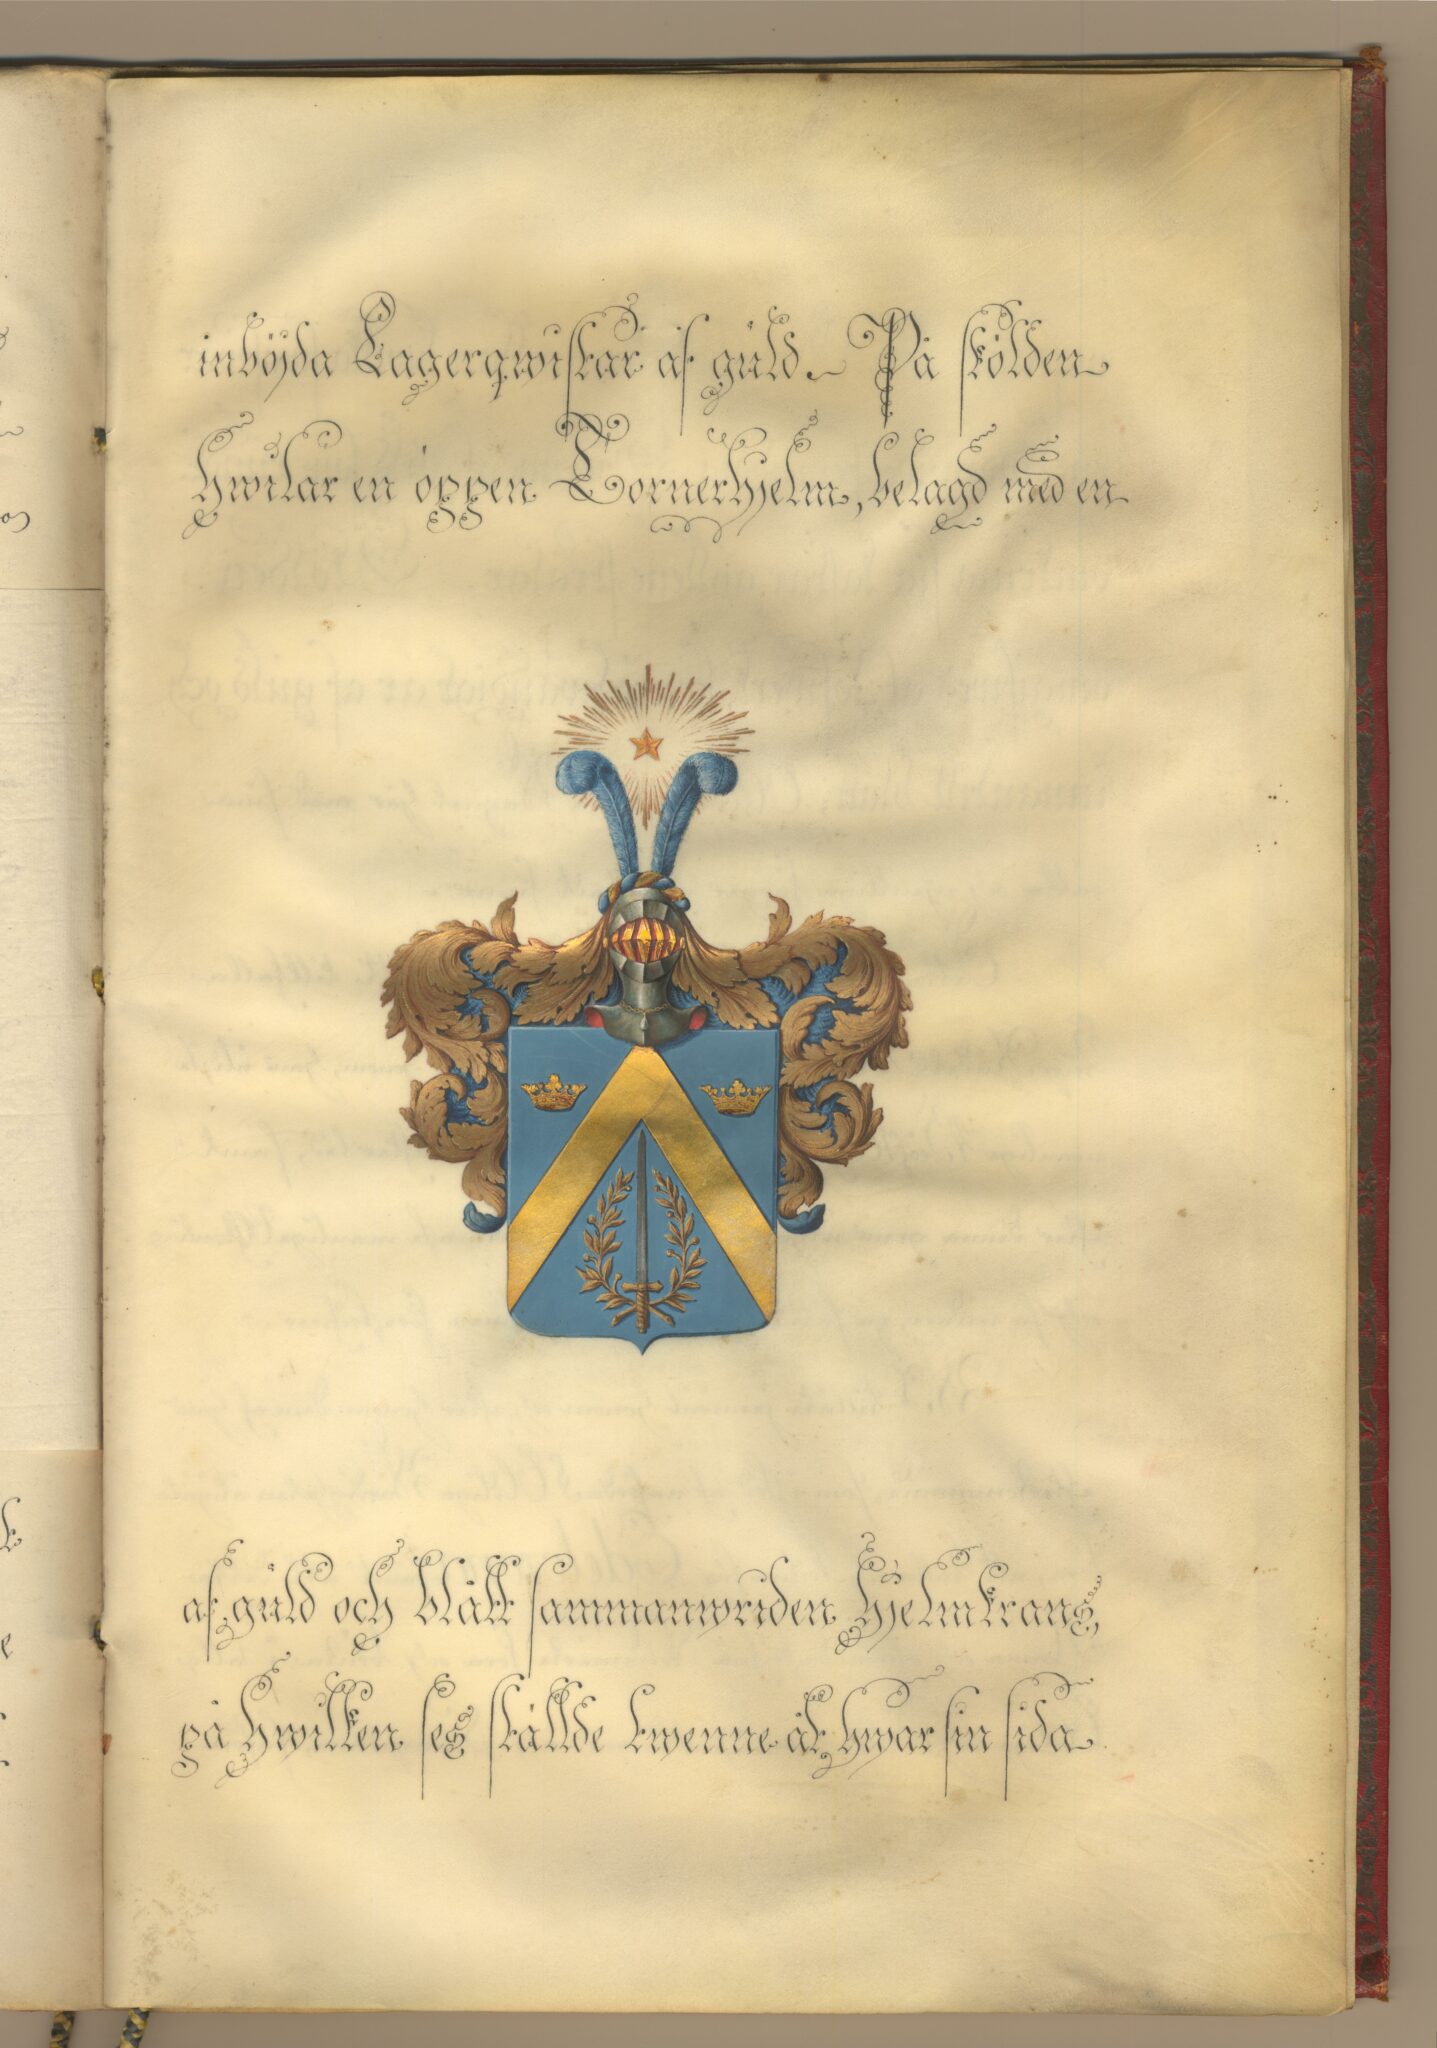 inböjda Lagerqwistar af guld. På skölden
hwilar en öppen Tornerhjelm, belagd med en
af guld och blått sammanwriden hjelmkrans,
på hwilken ses ställde twenne åt hwar sin sida